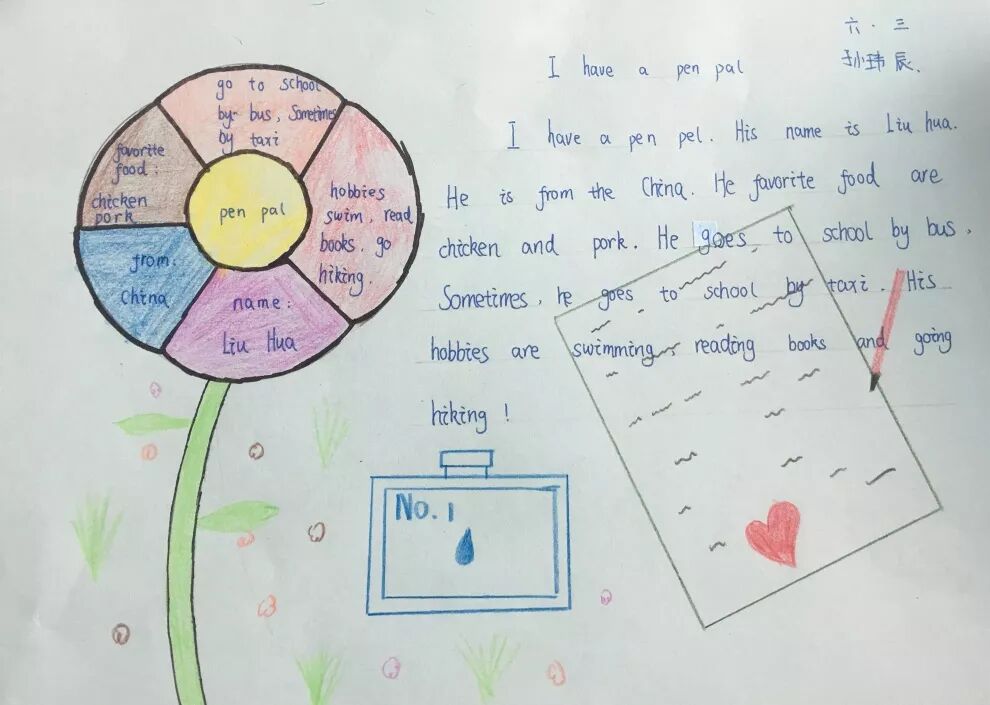 go to school
by bus, Sometimes
by taxi
favorite
food:
chicken
pork
pen pal
hobbies
swim, read
books, go
hiking.
from:
China
name:
Liu Hua
六·三
孙玮辰.
I have a pen pal
I have a pen pel. His name is Liu hua.
He is from the China. He favorite food are
chicken and pork. He goes to school by bus,
Sometimes, he goes to school by taxi. His
hobbies are swimming, reading books and going
hiking!
No.1